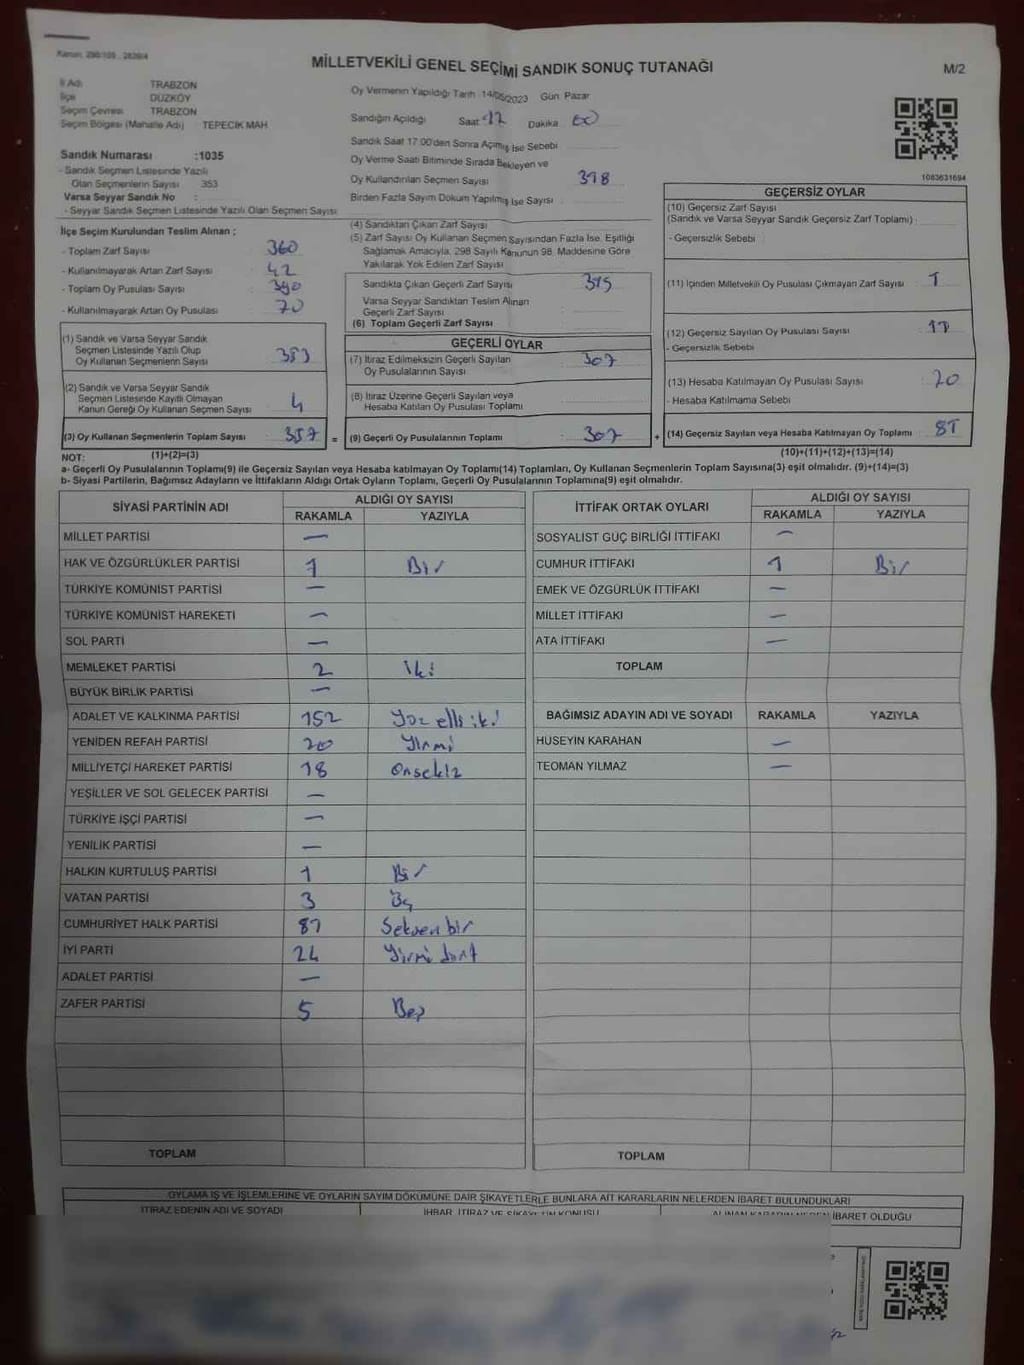 Kanun: 298/105 , 2839/4
MİLLETVEKİLİ GENEL SEÇİMİ SANDIK SONUÇ TUTANAĞI
M/2
İl Adı TRABZON
İlçe DÜZKÖY
Seçim Çevresi TRABZON
Seçim Bölgesi (Mahalle Adı) TEPECİK MAH
Oy Vermenin Yapıldığı Tarih :14/05/2023 Gün: Pazar
Sandığın Açıldığı Saat Dakika
Sandık Saat 17:00'den Sonra Açılmış İse Sebebi
Oy Verme Saati Bitiminde Sırada Bekleyen ve
Oy Kullandırılan Seçmen Sayısı
Birden Fazla Sayım Döküm Yapılmış İse Sayısı
Sandık Numarası :1035
- Sandık Seçmen Listesinde Yazılı
Olan Seçmenlerin Sayısı 353
Varsa Seyyar Sandık No :
- Seyyar Sandık Seçmen Listesinde Yazılı Olan Seçmen Sayısı
İlçe Seçim Kurulundan Teslim Alınan ;
- Toplam Zarf Sayısı 360
- Kullanılmayarak Artan Zarf Sayısı 42
- Toplam Oy Pusulası Sayısı
- Kullanılmayarak Artan Oy Pusulası 70
(1) Sandık ve Varsa Seyyar Sandık
Seçmen Listesinde Yazılı Olup
Oy Kullanan Seçmenlerin Sayısı
(2) Sandık ve Varsa Seyyar Sandık
Seçmen Listesinde Kayıtlı Olmayan
Kanun Gereği Oy Kullanan Seçmen Sayısı 4
(3) Oy Kullanan Seçmenlerin Toplam Sayısı =
(4) Sandıktan Çıkan Zarf Sayısı
(5) Zarf Sayısı Oy Kullanan Seçmen Sayısından Fazla İse, Eşitliği
Sağlamak Amacıyla, 298 Sayılı Kanunun 98. Maddesine Göre
Yakılarak Yok Edilen Zarf Sayısı
Sandıkta Çıkan Geçerli Zarf Sayısı
Varsa Seyyar Sandıktan Teslim Alınan
Geçerli Zarf Sayısı
(6) Toplam Geçerli Zarf Sayısı
GEÇERLİ OYLAR
(7) İtiraz Edilmeksizin Geçerli Sayılan 307
Oy Pusulalarının Sayısı
(8) İtiraz Üzerine Geçerli Sayılan veya
Hesaba Katılan Oy Pusulası Toplamı
(9) Geçerli Oy Pusulalarının Toplamı 307 +
1083631694
GEÇERSİZ OYLAR
(10) Geçersiz Zarf Sayısı
(Sandık ve Varsa Seyyar Sandık Geçersiz Zarf Toplamı)
- Geçersizlik Sebebi
(11) İçinden Milletvekili Oy Pusulası Çıkmayan Zarf Sayısı 1
(12) Geçersiz Sayılan Oy Pusulası Sayısı
- Geçersizlik Sebebi
(13) Hesaba Katılmayan Oy Pusulası Sayısı 20
- Hesaba Katılmama Sebebi
(14) Geçersiz Sayılan veya Hesaba Katılmayan Oy Toplamı
NOT: (1)+(2)=(3)
(10)+(11)+(12)+(13)=(14)
a- Geçerli Oy Pusulalarının Toplamı(9) ile Geçersiz Sayılan veya Hesaba katılmayan Oy Toplamı(14) Toplamları, Oy Kullanan Seçmenlerin Toplam Sayısına(3) eşit olmalıdır. (9)+(14)=(3)
b- Siyasi Partilerin, Bağımsız Adayların ve İttifakların Aldığı Ortak Oyların Toplamı, Geçerli Oy Pusulalarının Toplamına(9) eşit olmalıdır.
SİYASİ PARTİNİN ADI ALDIĞI OY SAYISI
RAKAMLA YAZIYLA
MİLLET PARTİSİ —
HAK VE ÖZGÜRLÜKLER PARTİSİ 1 Bir
TÜRKİYE KOMÜNİST PARTİSİ —
TÜRKİYE KOMÜNİST HAREKETİ —
SOL PARTİ —
MEMLEKET PARTİSİ 2 İki
BÜYÜK BİRLİK PARTİSİ —
ADALET VE KALKINMA PARTİSİ 152 Yüz elli iki
YENİDEN REFAH PARTİSİ 20 Yirmi
MİLLİYETÇİ HAREKET PARTİSİ 18 Onsekiz
YEŞİLLER VE SOL GELECEK PARTİSİ —
TÜRKİYE İŞÇİ PARTİSİ —
YENİLİK PARTİSİ —
HALKIN KURTULUŞ PARTİSİ 1 Bir
VATAN PARTİSİ 3 Üç
CUMHURİYET HALK PARTİSİ 81 Seksen bir
İYİ PARTİ 24 Yirmi dört
ADALET PARTİSİ —
ZAFER PARTİSİ 5 Beş
TOPLAM
İTTİFAK ORTAK OYLARI ALDIĞI OY SAYISI
RAKAMLA YAZIYLA
SOSYALİST GÜÇ BİRLİĞİ İTTİFAKI —
CUMHUR İTTİFAKI 1 Bir
EMEK VE ÖZGÜRLÜK İTTİFAKI —
MİLLET İTTİFAKI —
ATA İTTİFAKI —
TOPLAM
BAĞIMSIZ ADAYIN ADI VE SOYADI RAKAMLA YAZIYLA
HÜSEYİN KARAHAN —
TEOMAN YILMAZ —
TOPLAM
OYLAMA İŞ VE İŞLEMLERİNE VE OYLARIN SAYIM DÖKÜMÜNE DAİR ŞİKAYETLERLE BUNLARA AİT KARARLARIN NELERDEN İBARET BULUNDUKLARI
İTİRAZ EDENİN ADI VE SOYADI İHBAR, İTİRAZ VE ŞİKAYETİN KONUSU ALINAN KARARIN NEDEN İBARET OLDUĞU